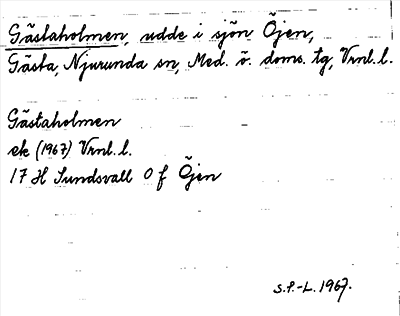 Gästaholmen, udde i sjön Öjen,
Gästa, Njurunda sn, Med. ö. doms. tg, Vrnl. l.
Gästaholmen
ek (1967) Vrnl. l.
17 H Sundsvall 0 f Öjen
S.P.-L. 1967.